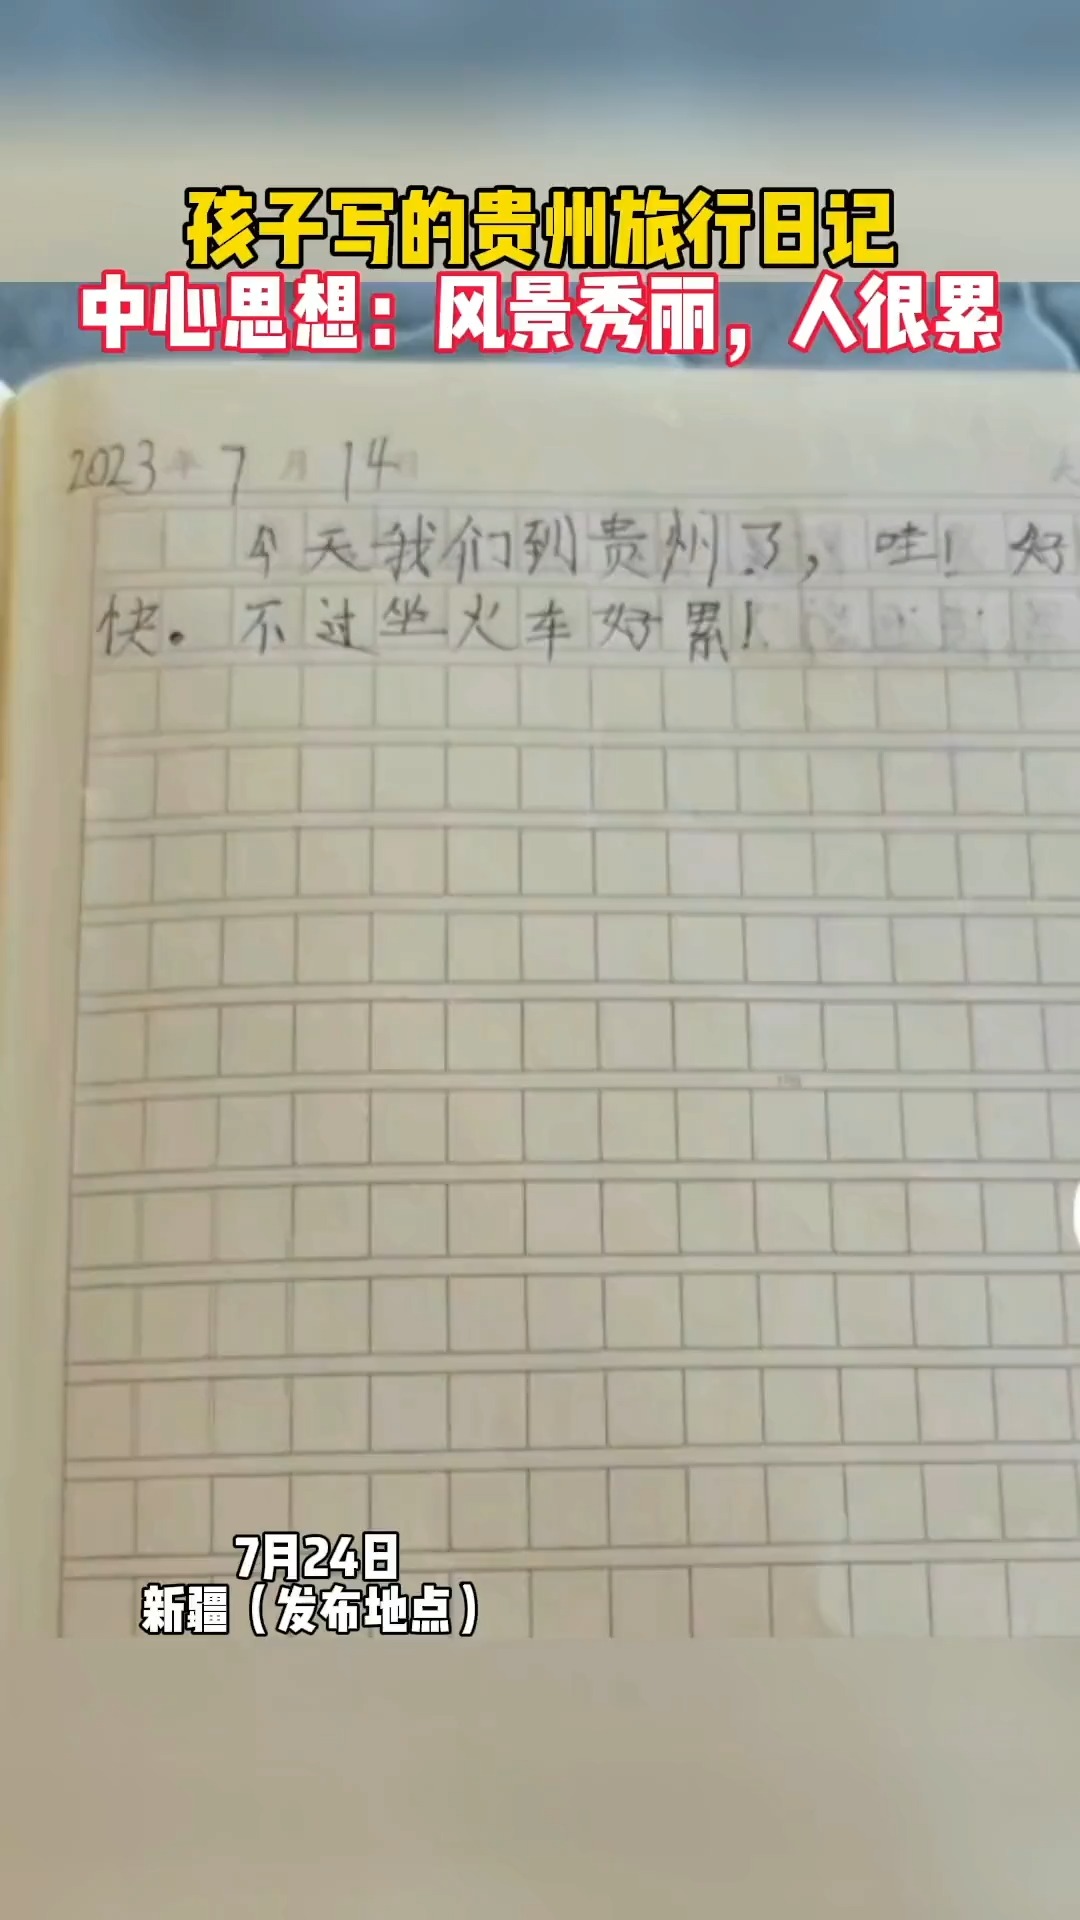 孩子写的贵州旅行日记
中心思想：风景秀丽，人很累
2023年7月14日
今天我们到贵州了，哇！好
快。不过坐火车好累！
7月24日
新疆（发布地点）